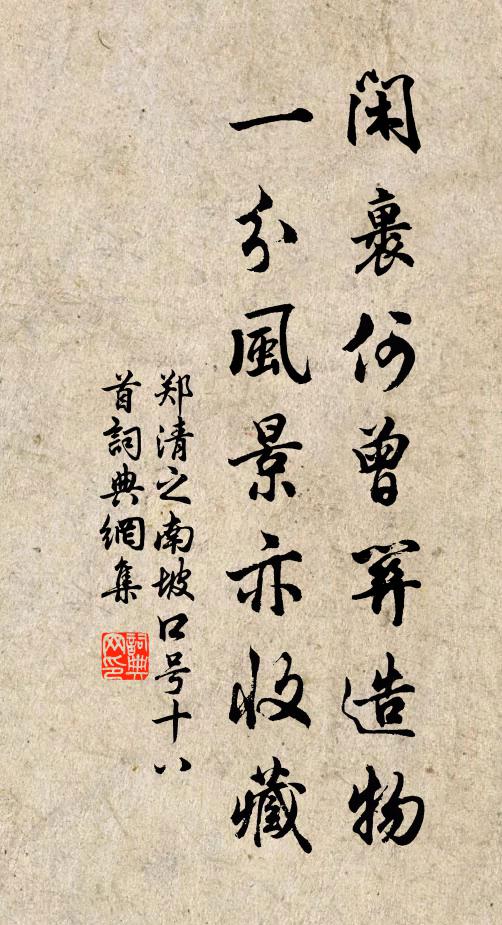 閑裏何曾造物
一分風景亦收藏
郑清之南坡口号十八
首詞典網集
詞典
网印